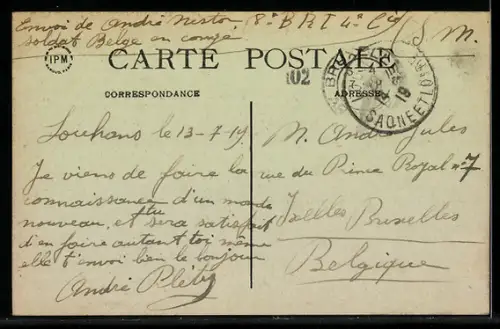 Envoi de André Nestor, 8e B R I 4e Cie
soldat Belge en congé
S. M.
CARTE POSTALE
IPM
102
CORRESPONDANCE
ADRESSE
SAONE ET
Louhans le 13-7-19
Je viens de faire la
connaissance d'un monde
nouveau, et tu sera satisfait
d'en faire autant toi même
elle t'envoi bien le bonjour
André
M. André Jules
rue du Prince Royal n° 7
Ixelles Bruxelles
Belgique